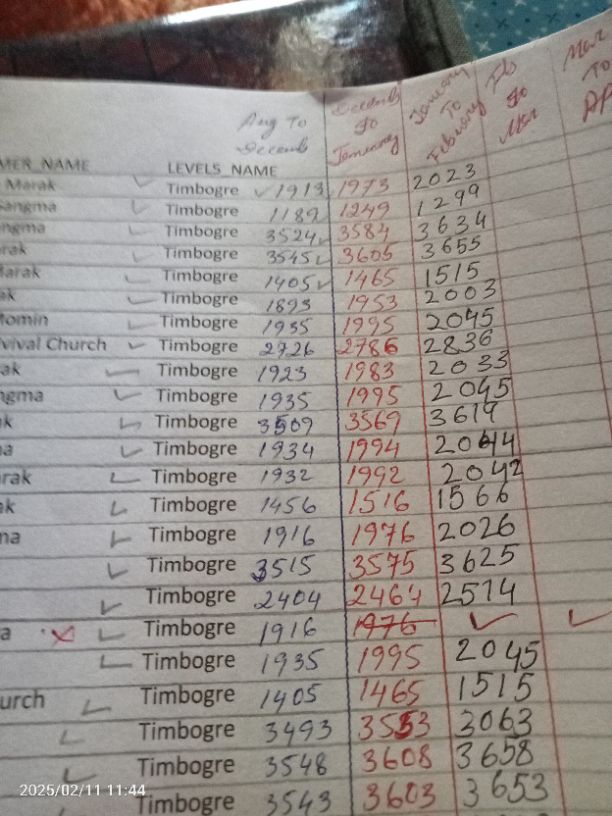 Aug To Decemb Decemb To January January To February Feb To Mar Mar To AP
MER_NAME LEVELS_NAME
Marak Timbogre 1913 1973 2023
Sangma Timbogre 1189 1249 1299
ngma Timbogre 3524 3584 3634
rak Timbogre 3545 3605 3655
Marak Timbogre 1405 1465 1515
ak Timbogre 1893 1953 2003
Momin Timbogre 1935 1995 2045
vival Church Timbogre 2726 2786 2836
ak Timbogre 1923 1983 2033
ngma Timbogre 1935 1995 2045
k Timbogre 3509 3569 3619
a Timbogre 1934 1994 2044
rak Timbogre 1932 1992 2042
ak Timbogre 1456 1516 1566
ma Timbogre 1916 1976 2026
Timbogre 3515 3575 3625
Timbogre 2404 2464 2514
a Timbogre 1916 1976
Timbogre 1935 1995 2045
urch Timbogre 1405 1465 1515
Timbogre 3493 3553 3063
Timbogre 3548 3608 3658
Timbogre 3543 3603 3653
2025/02/11 11:44